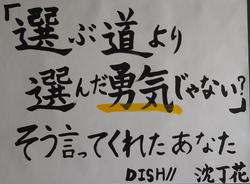 「選ぶ道より
選んだ勇気じゃない?
そう言ってくれたあなた
DISH// 沈丁花